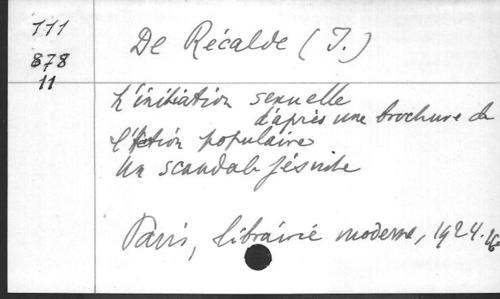 111
878
11
De Récalde (I.)
L'initiation sexuelle
d'après une brochure de
l'Action populaire
Un scandale jésuite
Paris, librairie moderne, 1924. 16°